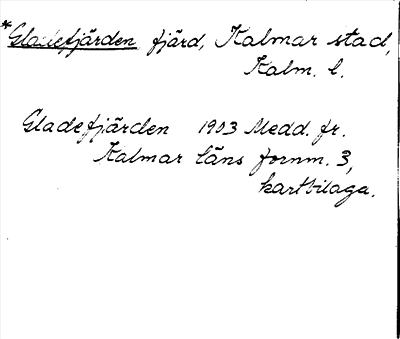 *Gladefjärden fjärd, Kalmar stad,
Kalm. l.
Gladefjärden 1903 Medd. fr.
Kalmar läns fornm. 3,
kartbilaga.